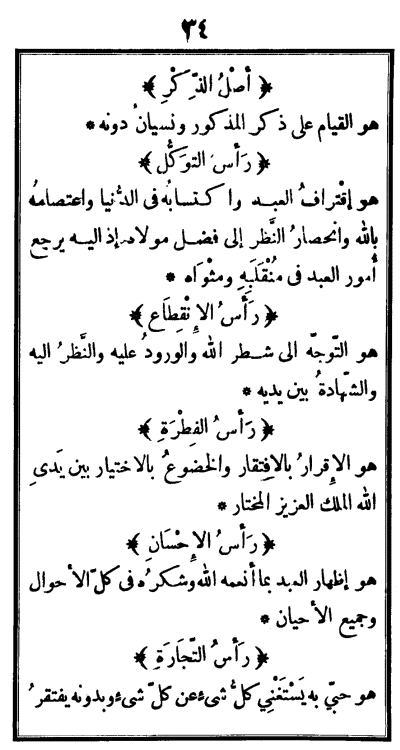 ٣٤
﴿ أَصْلُ الذِّكْرِ ﴾
هو القيام على ذكر المذكور ونسيانُ دونه *
﴿ رَأسُ التوَكُّل ﴾
هو إقْترافُ العبـد واكتسابُه فى الدُّنيا واعتصامهُ
بالله وانحصارُ النَّظر إلى فضل مولاه إذ اليـه يرجع
أُمور العبد فى مُنْقَلَبِهِ ومثْوَاه *
﴿ رَأْسُ الإِنْقِطَاعِ ﴾
هو التّوجّه الى شطر الله والورودُ عليه والنَّظرُ اليه
والشّهادةُ بين يديه *
﴿ رَأسُ الفِطْرَةِ ﴾
هو الإقرارُ بالافتقار والخضوعُ بالاختيار بين يَدىِ
الله الملك العزيز المختار *
﴿ رَأسُ الإِحْسَانِ ﴾
هو إظهار العبد بما أنعمه الله وشكرُه فى كلّ الأحوال
وجميع الأحيان *
﴿ رَأسُ التّجَارَةِ ﴾
هو حبّي به يَسْتَغْنِي كلُّ شىء عن كلّ شىء وبدونه يفتقرُ